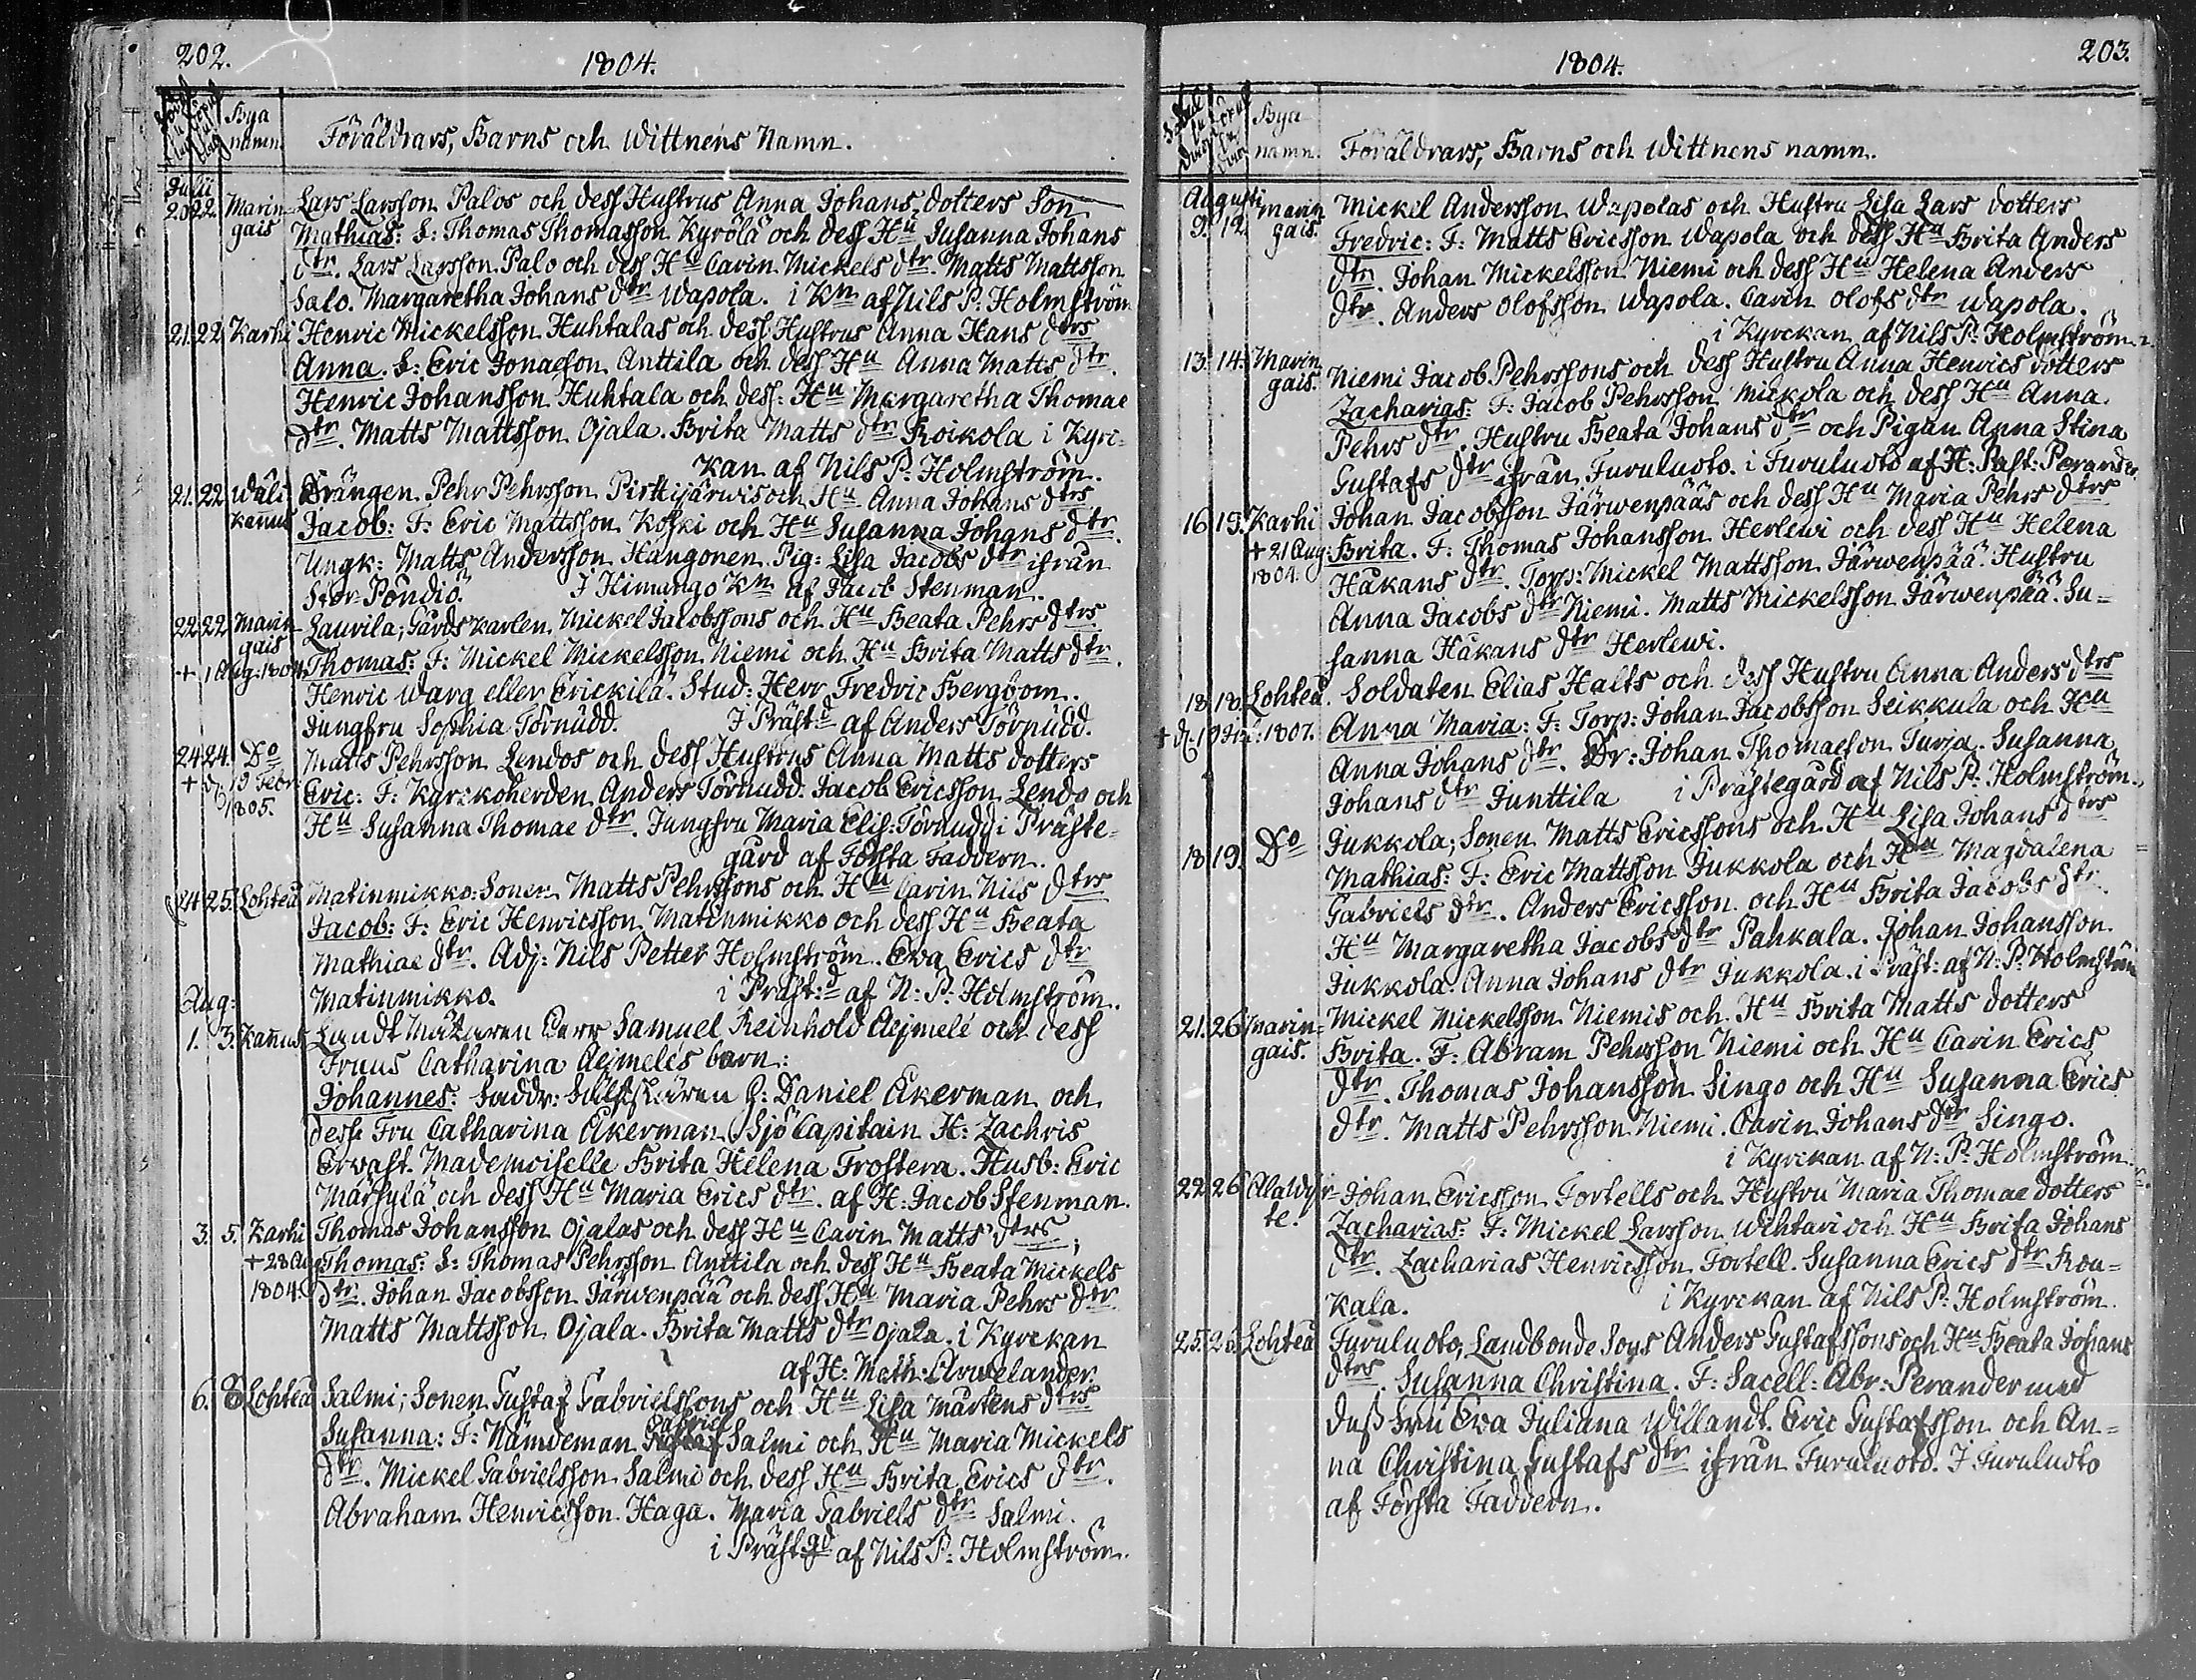 202.
1804.
Bya
namn.
Föräldrars, Barns och Wittnens Namn.
Julii
20 22 Marin Lars Larsson Palos och dess Hustrus Anna Johans dotters Son
gais Mathias: S: Thomas Thomasson Kyrölä och dess Hu Susanna Johans
dtr. Lars Larsson Palo och dess Hu Carin Mickels dtr. Matts Mattsson
Salo. Margaretha Johans dtr Wapola. i Kn af Nils P: Holmström
21. 22 Karhi Henric Mickelsson Huhtalas och dess Hustrus Anna Hans dtrs
Anna. S: Eric Jonaeson Anttila och dess Hu Anna Matts dtr.
Henric Johansson Huhtala och dess: Hu Margaretha Thomae
dtr. Matts Mattsson Ojala. Brita Matts dtr Roikola i Kyr-
kan af Nils P: Holmström.
21. 22 Wäli Drängen Pehr Pehrsson Pirttijärwis och Hu Anna Johans dtrs
kannus Jacob: F: Eric Mattsson Koski och Hu Susanna Johans dtr.
Ungk: Matts Andersson Hangonen. Pig: Lisa Jacobs dtr ifrån
Stor Pöndiö. I Himango Kn af Jacob Stenman.
22 22 Marin Laurila; Gårdskarlen Mickel Jacobssons och Hu Beata Pehrs dtrs
gais
+ 1 Aug. 1804. Thomas: F: Mickel Mickelsson Niemi och Hu Brita Matts dtr.
Henric Warg eller Erickilä. Stud: Herr Fredric Bergbom.
Jungfru Sophia Törnudd. I Präst:d af Anders Törnudd.
24 24. Do Matts Pehrsson Lendos och dess Hustrus Anna Matts dotters
+ d. 19 Febr. Eric: F: Kyrckoherden Anders Törnudd. Jacob Ericsson Lendo och
1805. Hu Susanna Thomae dtr. Jungfru Maria Elis: Törnudd i Präste-
gård af Första Faddern.
24 25. Lohteå Matinmikko: Sonen Matts Pehrssons och Hu Carin Nils dtrs
Jacob: F: Eric Henricsson Matinmikko och dess Hu Beata
Mathiae dtr. Adj: Nils Petter Holmström. Ewa Erics dtr
Matinmikko. i Präst:d af N: P: Holmström.
Aug:
1. 3. Kannus Landt Mätaren Herr Samuel Reinhold Aejmelé och dess
Fruus Catharina Aejmeles barn:
Johannes: Faddr: H: Daniel Åkerman och
dess Fru Catharina Åkerman. Sjö Capitain H: Zachris
Erwast. Mademoiselle Brita Helena Frostera. Husb: Eric
Märsylä och dess Hu Maria Erics dtr. af H: Jacob Stenman.
3. 5. Karhi Thomas Johansson Ojalas och dess Hu Carin Matts dtrs;
+ 28 Aug Thomas: S: Thomas Pehrsson Anttila och dess Hu Beata Mickels
1804. dtr. Johan Jacobsson Järwenpää och dess Hu Maria Pehrs dtr
Matts Mattsson Ojala. Brita Matts dtr Ojala. i Kyrckan
af H: Math: Arwelander.
6. 8 Lohteå Salmi; Sonen Gustaf Gabrielssons och Hu Lisa Mårtens dtrs
Gabriel
Susanna: F: Nämdeman Gustaf Salmi och Hu Maria Mickels
dtr. Mickel Gabrielsson Salmi och dess Hu Brita Erics dtr.
Abraham Henricsson Haga. Maria Gabriels dtr Salmi.
i Prästgd af Nils P: Holmström.
203.
1804.
Bya
namn.
Föräldrars, Barns och Wittnens namn.
Augusti
9. 12. Marin Mickel Andersson Wapolas och Hustru Lisa Lars dotters
gais. Fredric: F: Matts Ericsson Wapola och dess Hu Brita Anders
dtr. Johan Mickelsson Niemi och dess Hu Helena Anders
dtr. Anders Olofsson Wapola. Carin Olofs dtr Wapola.
i Kyrckan af Nils P: Holmström.
13. 14. Marin Niemi Jacob Pehrssons och dess Hustru Anna Henrics dotters
gais. Zacharias: F: Jacob Pehrsson Mickola och dess Hu Anna
Pehrs dtr. Hustru Beata Johans dtr och Pigan Anna Stina
Gustafs dtr ifrån Furuluoto. i Furuluoto af H: Past: Perander.
16 19. Karhi Johan Jacobsson Järwenpääs och dess Hu Maria Pehrs dtrs
+ 21 Aug: Brita. F: Thomas Johansson Herlewi och dess Hu Helena
1804. Håkans dtr. Torp: Mickel Mattsson Järwenpää. Hustru
Anna Jacobs dtr Niemi. Matts Mickelsson Järwenpää. Su-
sanna Håkans dtr Herlewi.
18 18. Lohteå. Soldaten Elias Halts och dess Hustru Anna Anders dtrs
+ d. 1807. Anna Maria: F: Torp: Johan Jacobsson Seikkula och Hu
Anna Johans dtr. Dr: Johan Thomaeson Turja. Susanna
Johans dtr Junttila i Prästegård af Nils P: Holmström.
18. 19. Do Jukkola; Sonen Matts Ericssons och Hu Lisa Johans dtrs
Mathias: F: Eric Mattsson Jukkola och Hu Magdalena
Gabriels dtr. Anders Ericsson och Hu Brita Jacobs dtr.
Hu Margaretha Jacobs dtr Pahkala. Johan Johansson
Jukkola. Anna Johans dtr Jukkola. i Präst: af N: P: Holmström
21. 26 Marin- Mickel Mickelsson Niemis och Hu Brita Matts dotters
gais. Brita. F: Abram Pehrsson Niemi och Hu Carin Erics
dtr. Thomas Johansson Singo och Hu Susanna Erics
dtr. Matts Pehrsson Niemi. Carin Johans dtr Singo.
i Kyrckan af N: P: Holmström.
22 26 Alawijr- Johan Ericsson Tortells och Hustru Maria Thomae dotters
te. Zacharias: F: Mickel Larsson Wihtari och Hu Brita Johans
dtr. Zacharias Henricsson Tortell. Susanna Erics dtr Rou-
kala. i Kyrckan af Nils P: Holmström.
25. 26. Lohteå Furuluoto, Landbonde Sons Anders Gustafssons och Hu Beata Johans
dtrs. Susanna Christina. F: Sacell: Abr: Perander med
dess Fru Ewa Juliana Willandt. Eric Gustafsson och An-
na Christina Gustafs dtr ifrån Furuluoto. I Furuluoto
af Första Faddern.